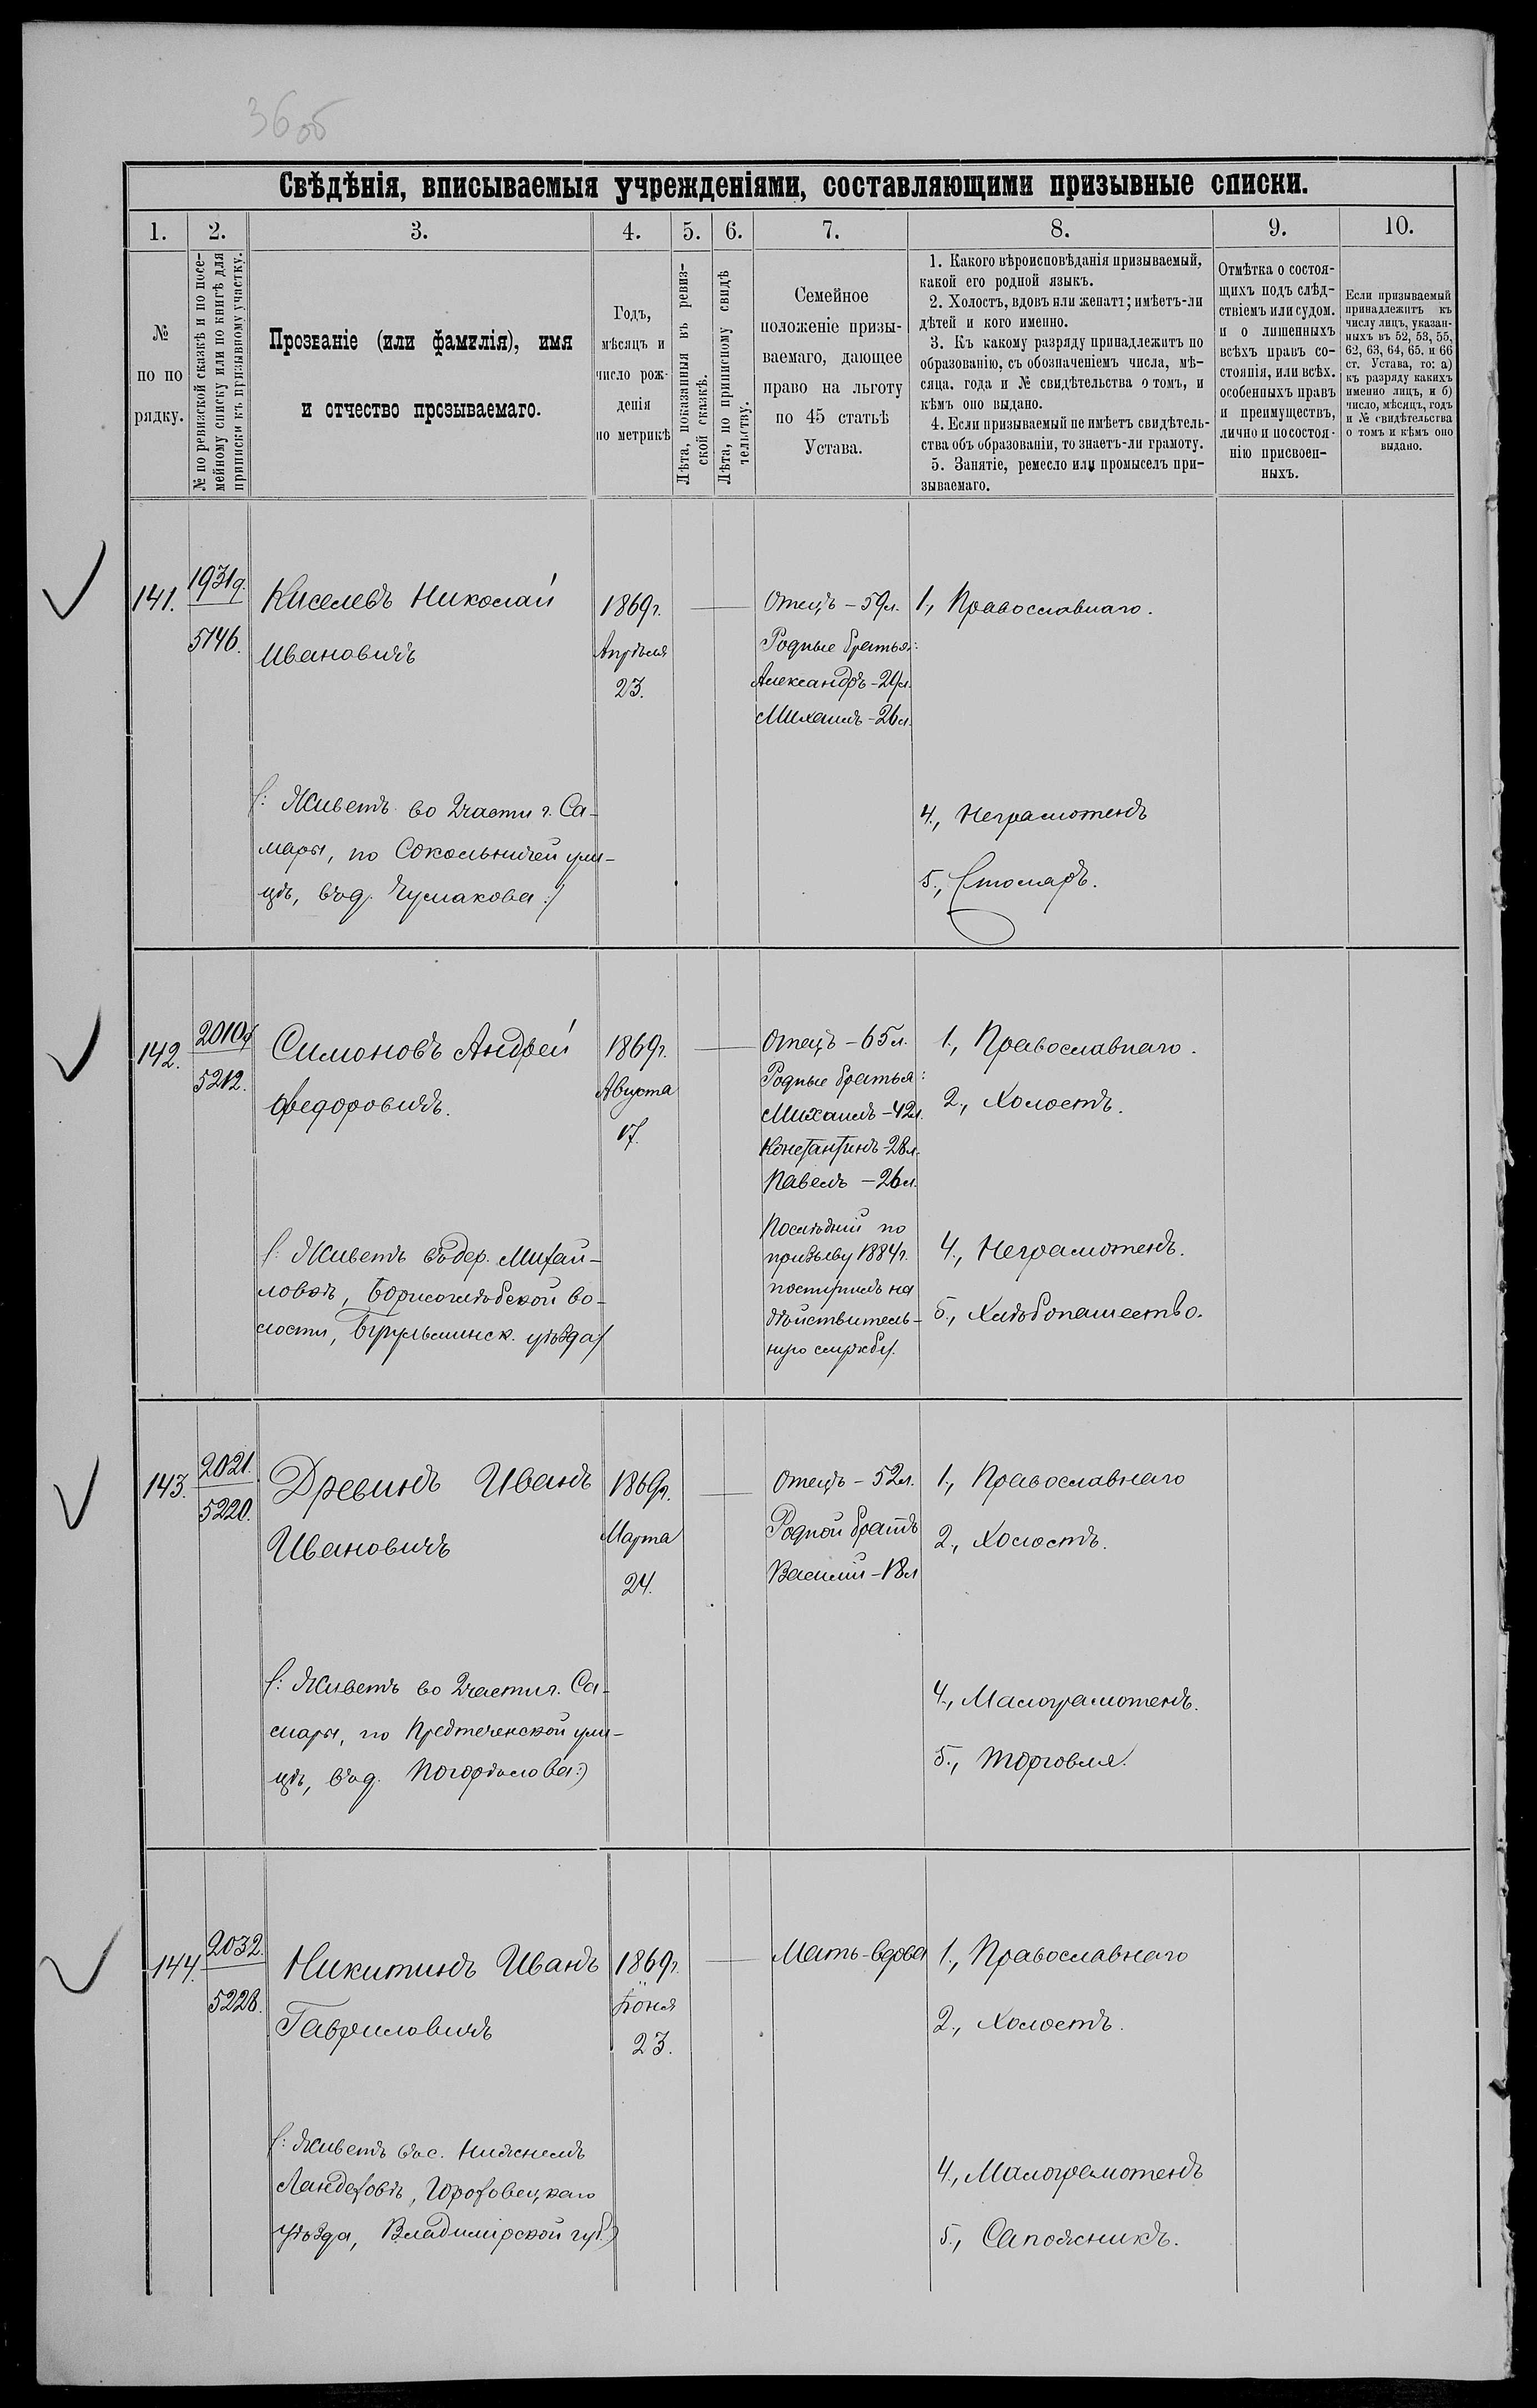 36 об
Свѣдѣнія, вписываемыя учрежденіями, составляющими призывные списки.
1. 2. 3. 4. 5. 6. 7. 8. 9. 10.
№
по по
рядку.
№ по ревизской сказкѣ и по посе-
мейному списку или по книгѣ для
приписки къ призывному участку.
Прозваніе (или фамилія), имя
и отчество прозываемаго.
Годъ,
мѣсяцъ и
число рож-
денія
по метрикѣ
Лѣта, показанныя въ ревиз-
ской сказкѣ.
Лѣта, по приписному свидѣ
чельству.
Семейное
положеніе призы-
ваемаго, дающее
право на льготу
по 45 статьѣ
Устава.
1. Какого вѣроисповѣданія призываемый,
какой его родной языкъ.
2. Холостъ, вдовъ или женатъ; имѣетъ-ли
дѣтей и кого именно.
3. Къ какому разряду принадлежитъ по
образованію, съ обозначеніемъ числа, мѣ-
сяца, года и № свидѣтельства о томъ, и
кѣмъ оно выдано.
4. Если призываемый не имѣетъ свидѣтель-
ства объ образованіи, то знаетъ-ли грамоту.
5. Занятіе, ремесло или промыселъ при-
зываемаго.
Отмѣтка о состоя-
щихъ подъ слѣд-
ствіемъ или судом.
и о лишенныхъ
всѣхъ правъ со-
стоянія, или всѣх.
особенныхъ правъ
и преимуществъ,
лично и по состоя-
нію присвоен-
ныхъ.
Если призываемый
принадлежитъ къ
числу лицъ, указан-
ныхъ въ 52, 53, 55,
62, 63, 64, 65. и 66
ст. Устава, то: а)
къ разряду какихъ
именно лицъ, и б)
число, мѣсяцъ, годъ
и № свидѣтельства
о томъ и кѣмъ оно
выдано.
141.
1931д.
5146.
Киселевъ Николай
Ивановичъ
(: Живетъ во 2 части г. Са-
мары, по Сокольничей ули-
цѣ, въ д. Чумакова :)
1869 г.
Апрѣля
23.
Отецъ - 59 л.
Родные братья:
Александръ - 29 л.
Михаилъ - 26 л.
1., Православнаго.
4., Неграмотенъ
5., Столяръ.
142.
2010
5212.
Симоновъ Андрей
Федоровичъ.
(: Живетъ въ дер. Михай-
ловкѣ, Борисоглѣбской во-
лости, Бугульминск. уѣзда)
1869 г.
Августа
17.
Отецъ - 65 л.
Родные братья:
Михаилъ - 42 л.
Константинъ - 28 л.
Павелъ - 26 л.
Послѣдній по
призыву 1884 г.
поступилъ на
дѣйствитель-
ную службу.
1., Православнаго.
2., Холостъ.
4., Неграмотенъ.
5., Хлѣбопашество.
143.
2021.
5220.
Древинъ Иванъ
Ивановичъ
(: Живетъ во 2 части г. Са-
мары, по Предтеченской ули-
цѣ, въ д. Погорѣлова :)
1869 г.
Марта
24.
Отецъ - 52 л.
Родной братъ
Василій - 18 л
1., Православнаго
2., Холостъ.
4., Малограмотенъ.
5., Торговля.
144.
2032.
5228.
Никитинъ Иванъ
Гавриловичъ
(: Живетъ въ с. Нижнемъ
Ландеховѣ, Гороховецкаго
уѣзда, Владимірской губ.)
1869 г.
Іюня
23.
Мать - вдова
1., Православнаго
2., Холостъ.
4., Малограмотенъ
5., Сапожникъ.